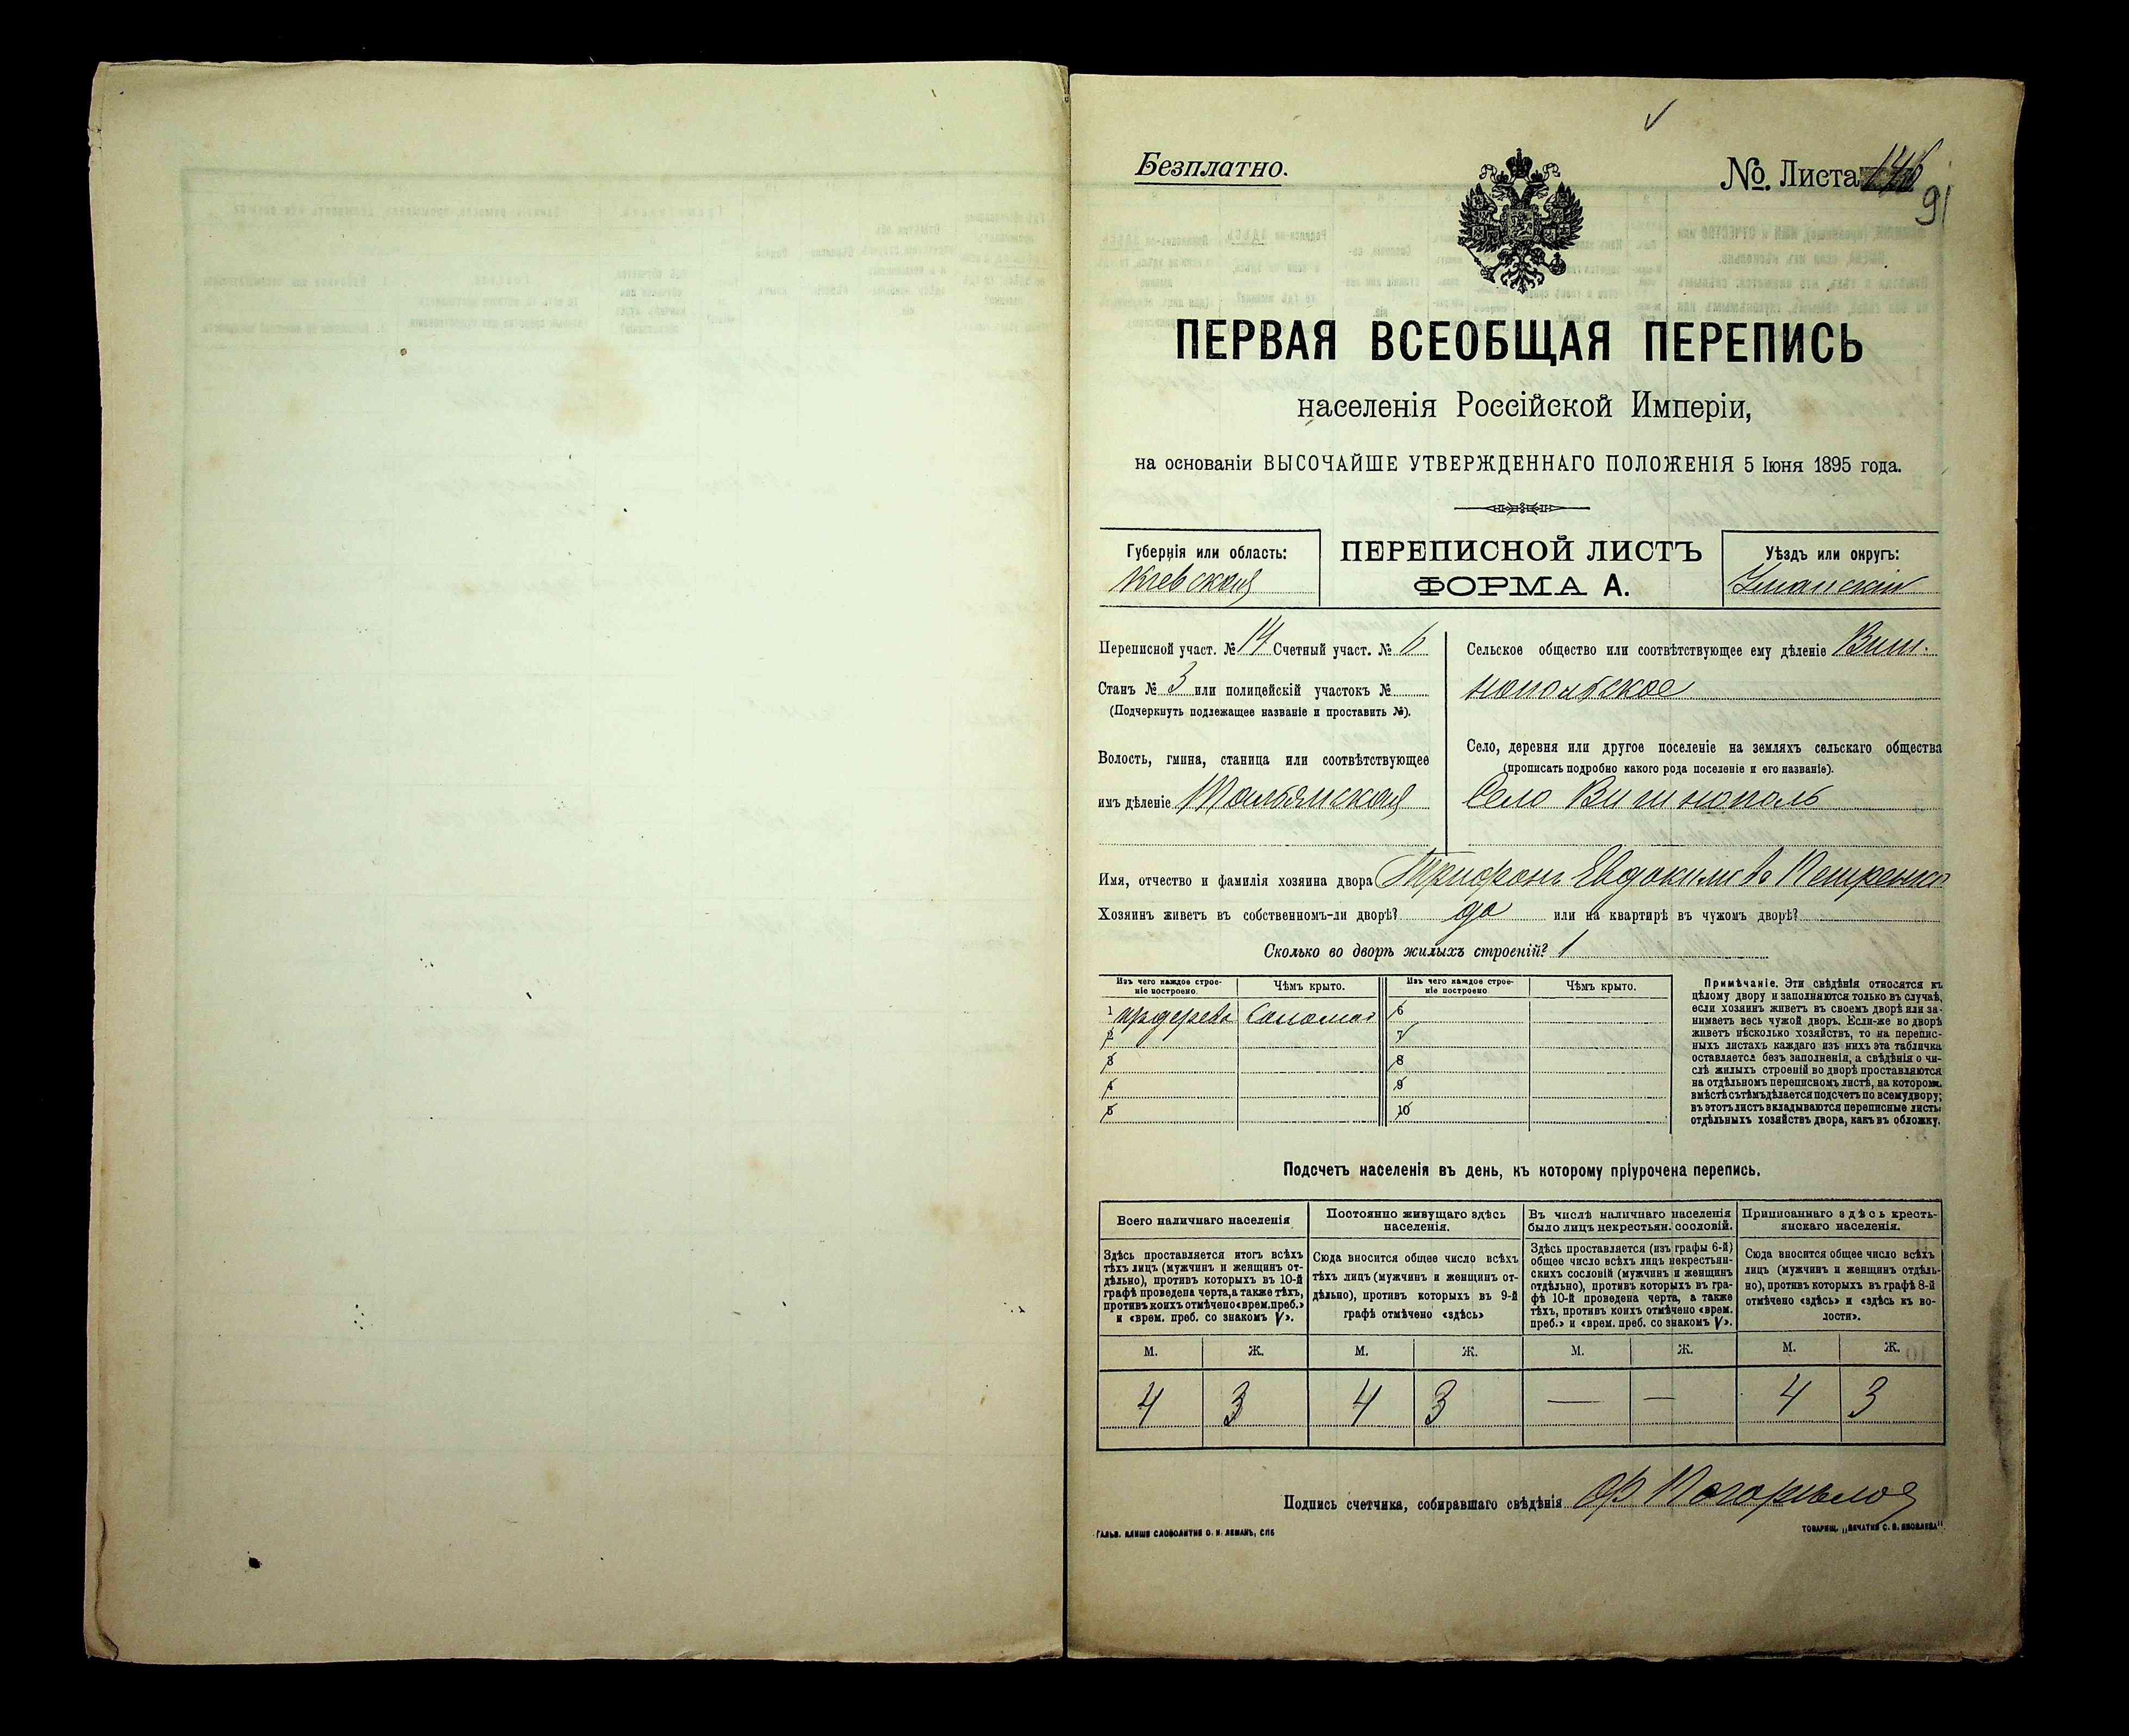 Безплатно.
№. Листа 146
91
ПЕРВАЯ ВСЕОБЩАЯ ПЕРЕПИСЬ
населенія Россійской Имперіи,
на основаніи ВЫСОЧАЙШЕ УТВЕРЖДЕННАГО ПОЛОЖЕНІЯ 5 Іюня 1895 года.
Губернія или область:
Кіевская
ПЕРЕПИСНОЙ ЛИСТЪ
ФОРМА А.
Уѣздъ или округъ:
Уманскій
Переписной участ. № 14 Счетный участ. № 6
Станъ № 3 или полицейскій участокъ №
(Подчеркнуть подлежащее названіе и проставить №).
Волость, гмина, станица или соотвѣтствующее
имъ дѣленіе Тальянская
Сельское общество или соотвѣтствующее ему дѣленіе Виш-
нопольское
Село, деревня или другое поселеніе на земляхъ сельскаго общества
(прописать подробно какого рода поселеніе и его названіе).
Село Вишнополь
Имя, отчество и фамилія хозяина двора Трифонъ Евдокимовъ Петренко
Хозяинъ живетъ въ собственномъ-ли дворѣ? да или на квартирѣ въ чужомъ дворѣ?
Сколько во дворѣ жилыхъ строеній? 1
Изъ чего каждое строе-
ніе построено.
Чѣмъ крыто.
Изъ чего каждое строе-
ніе построено
Чѣмъ крыто.
1 изъ дерева Соломою 6
2 7
3 8
4 9
5 10
Примѣчаніе. Эти свѣдѣнія относятся къ
цѣлому двору и заполняются только въ случаѣ,
если хозяинъ живетъ въ своемъ дворѣ или за-
нимаетъ весь чужой дворъ. Если-же во дворѣ
живетъ нѣсколько хозяйствъ, то на перепис-
ныхъ листахъ каждаго изъ нихъ эта табличка
оставляется безъ заполненія, а свѣдѣнія о чи-
слѣ жилыхъ строеній во дворѣ проставляются
на отдѣльномъ переписномъ листѣ, на которомъ
вмѣстѣ съ тѣмъ дѣлается подсчетъ по всему двору;
въ этотъ листъ вкладываются переписные листы
отдѣльныхъ хозяйствъ двора, какъ въ обложку.
Подсчетъ населенія въ день, къ которому пріурочена перепись.
Всего наличнаго населенія
Здѣсь проставляется итогъ всѣхъ
тѣхъ лицъ (мужчинъ и женщинъ от-
дѣльно), противъ которыхъ въ 10-й
графѣ проведена черта, а также тѣхъ,
противъ коихъ отмѣчено «врем. преб.»
и «врем. преб. со знакомъ V».
Постоянно живущаго здѣсь
населенія.
Сюда вносится общее число всѣхъ
тѣхъ лицъ (мужчинъ и женщинъ от-
дѣльно), противъ которыхъ въ 9-й
графѣ отмѣчено «здѣсь»
Въ числѣ наличнаго населенія
было лицъ некрестьян. сословій.
Здѣсь проставляется (изъ графы 6-й)
общее число всѣхъ лицъ некрестьян-
скихъ сословій (мужчинъ и женщинъ
отдѣльно), противъ которыхъ въ гра-
фѣ 10-й проведена черта, а также
тѣхъ, противъ коихъ отмѣчено «врем.
преб.» и «врем. преб. со знакомъ V».
Приписаннаго здѣсь кресть-
янскаго населенія.
Сюда вносится общее число всѣхъ
лицъ (мужчинъ и женщинъ отдѣль-
но), противъ которыхъ въ графѣ 8-й
отмѣчено «здѣсь» и «здѣсь къ во-
лости».
М. Ж. М. Ж. М. Ж. М. Ж.
4 3 4 3 — — 4 3
Подпись счетчика, собиравшаго свѣдѣнія Ф Погорѣлов
ГАЛЬВ. КЛИШЕ СЛОВОЛИТНИ О. И. ЛЕМАНЪ, СПБ
ТОВАРИЩ. „ПЕЧАТНЯ С. П. ЯКОВЛЕВА"